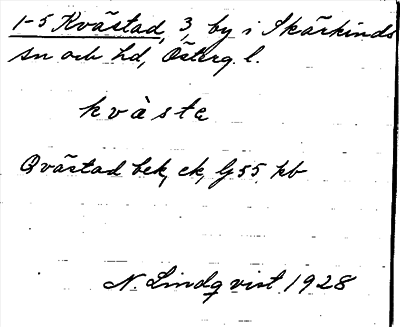 1-5 Kvästad, 3, by i Skärkinds
sn och hd, Österg. l.
kvàsta
Qvästad bek, ek, Gj 55 kb
N. Lindqvist 1928